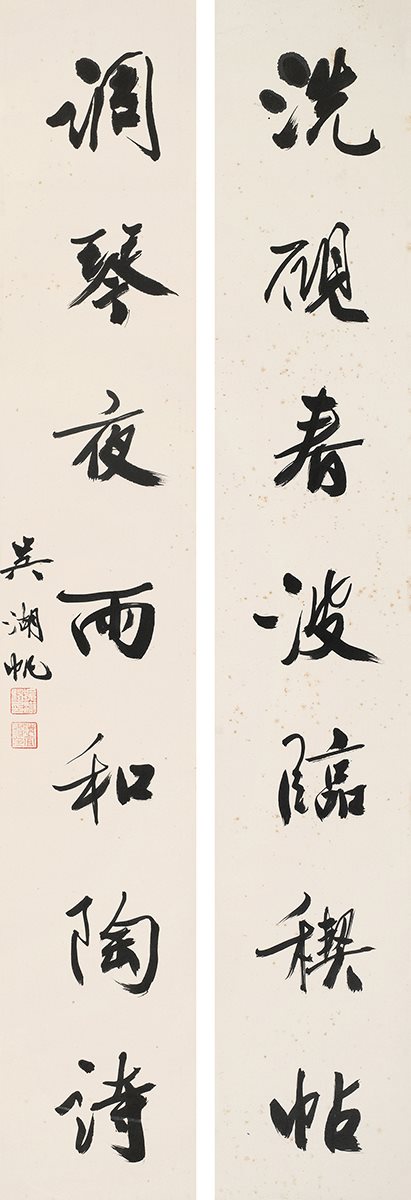 洗硯春波臨禊帖
調琴夜雨和陶詩
吳湖帆